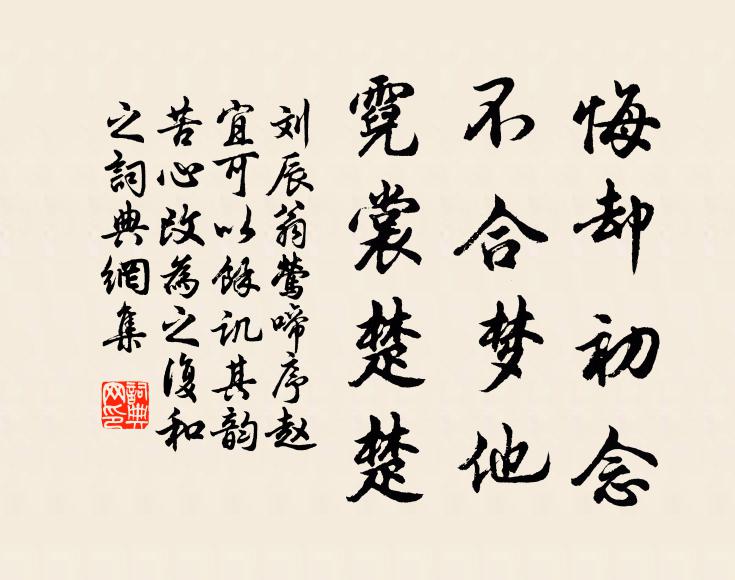 悔却初念
不合梦他
霓裳楚楚
刘辰翁莺啼序赵
宜可以馀讥其韵
苦心改为之復和
之詞典網集
詞典
网印